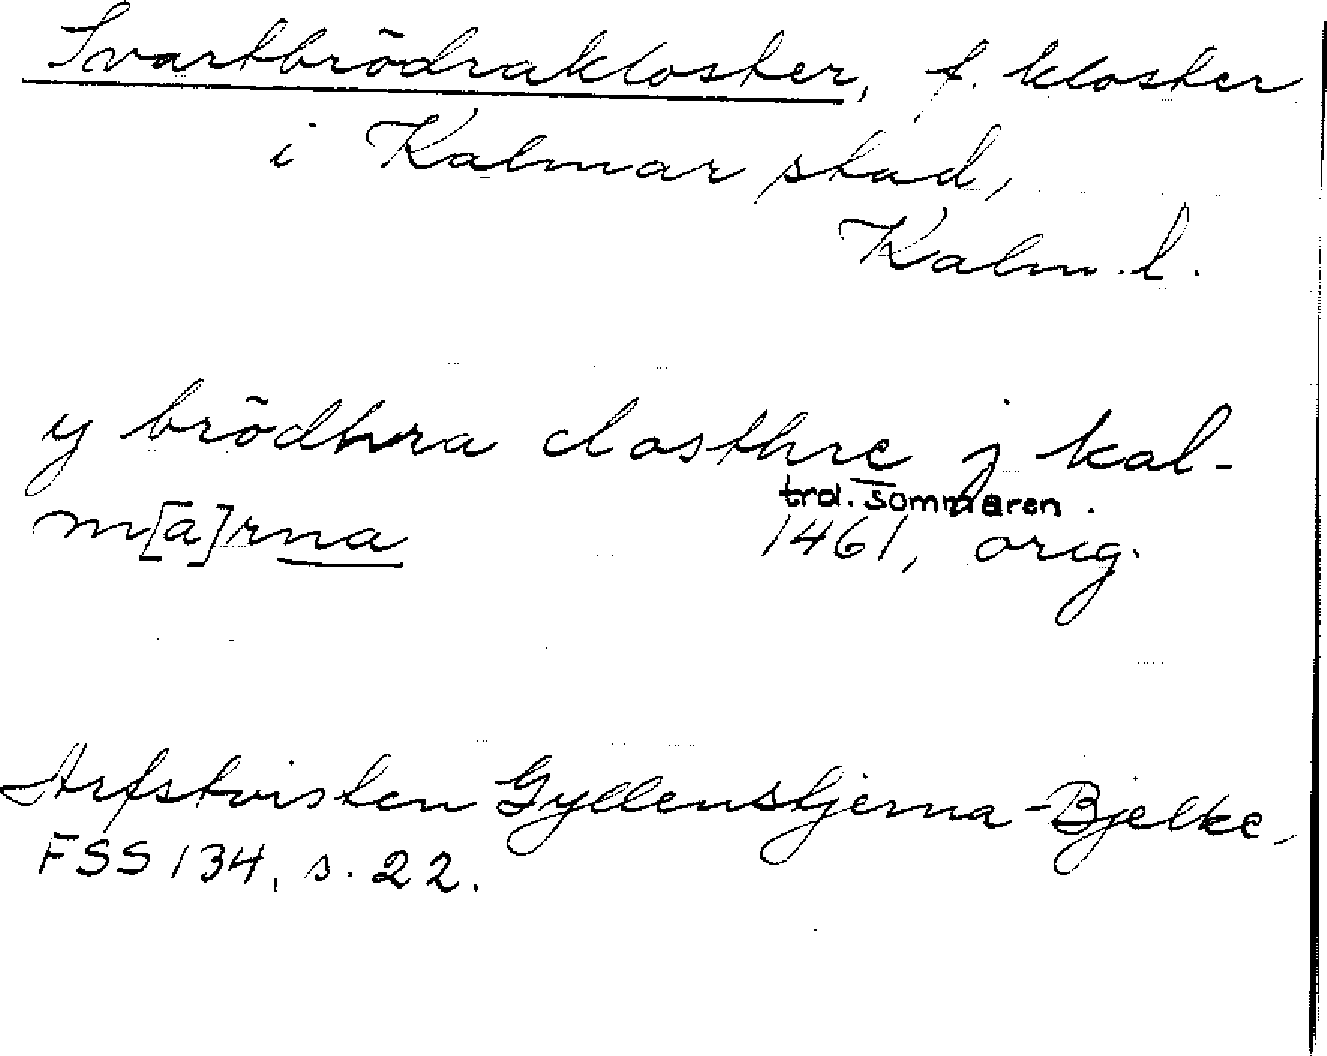 Svartbrödrakloster, f. kloster
i Kalmar stad,
Kalm. l.
y brödhra closthre j kal-
m[a]rna trol. sommaren.
1461, orig.
Arfstvisten Gyllenstjerna-Bjelke,
FSS 134, s. 22.